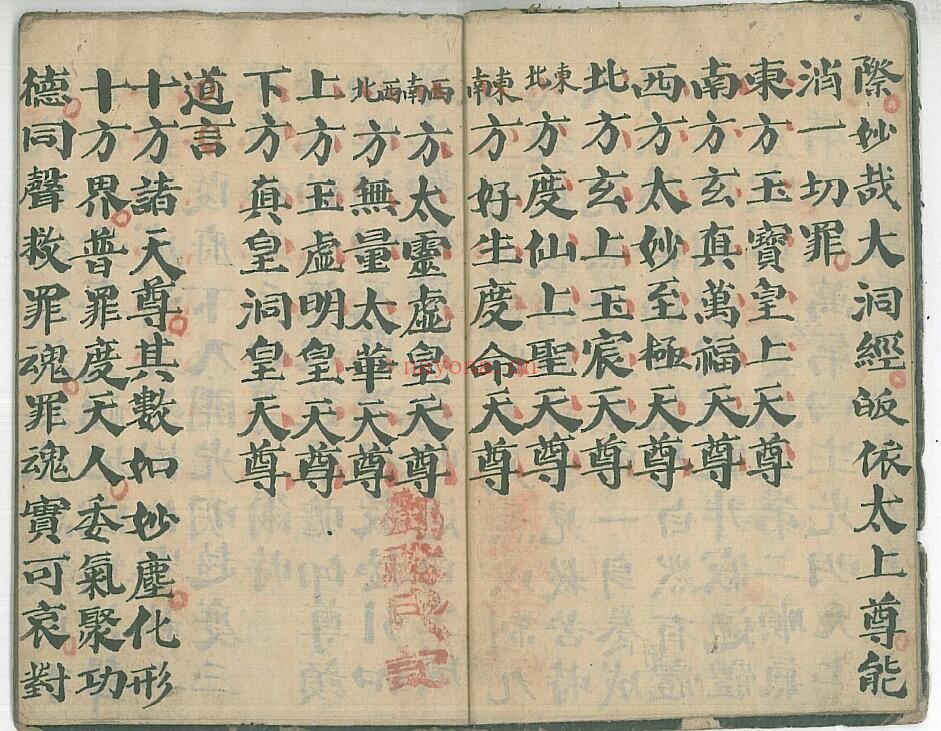 際妙哉大洞經皈依太上尊能
消一切罪
東方玉寶皇上天尊
南方玄真萬福天尊
西方太妙至極天尊
北方玄上玉宸天尊
東北方度仙上聖天尊
東南方好生度命天尊
西南方太靈虛皇天尊
西北方無量太華天尊
上方玉虛明皇天尊
下方真皇洞皇天尊
道言
十方諸天尊其數如妙塵化形
十方界普罪度天人委氣聚功
德同聲救罪魂罪魂實可哀對